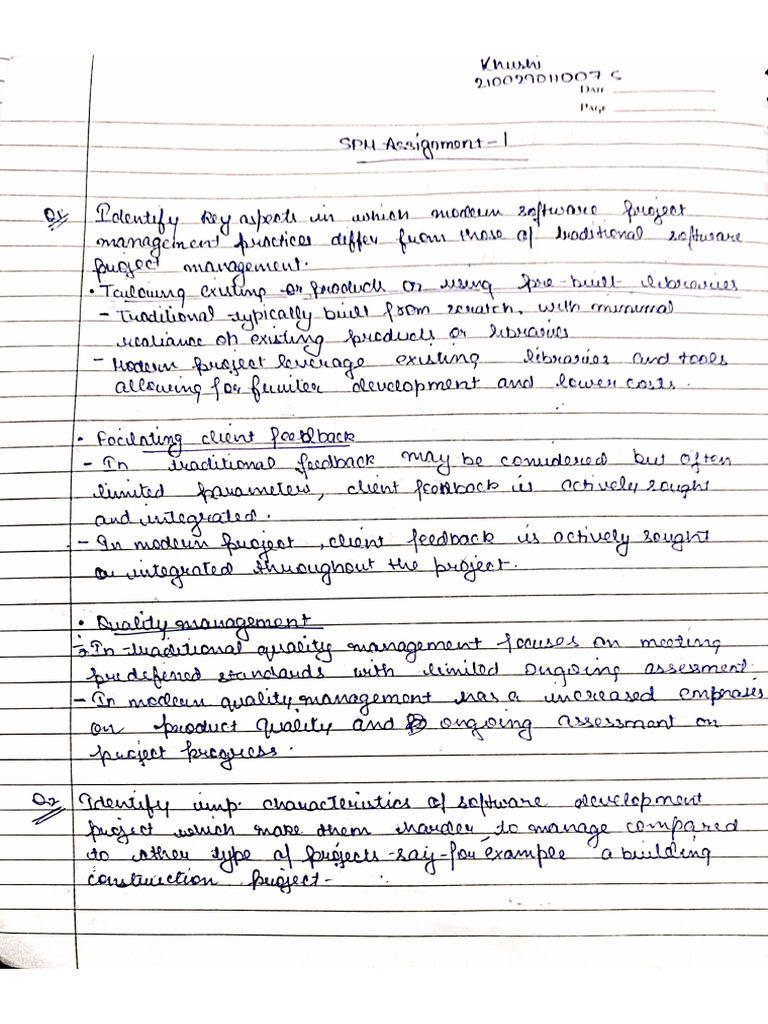 Khushi
210027011007 S
DATE
PAGE
SPM Assignment-1
Q1 Identify key aspects in which modern software project
management practices differ from those of traditional software
project management.
• Tailowing existing or product or using pre-built libraries
- Traditional typically built from scratch, with minimal
realiance on existing products or libraries
- Modern project leverage existing libraries and tools
allowing for development and lower costs.
• Facilating client feedback
- In traditional feedback may be considered but often
limited parameters, client feedback is actively sought
and integrated.
- In modern project, client feedback is actively sought
integrated throughout the project.
• Quality management
- In traditional quality management focuses on meeting
predefened standards with limited ongoing assessment.
- In modern quality management has a increased emphasis
on product quality and ongoing assessment on
project progress.
Q2 Identify imp. characteristics of software development
project which make them harder to manage compared
to other type of projects-say-for example a building
construction project-